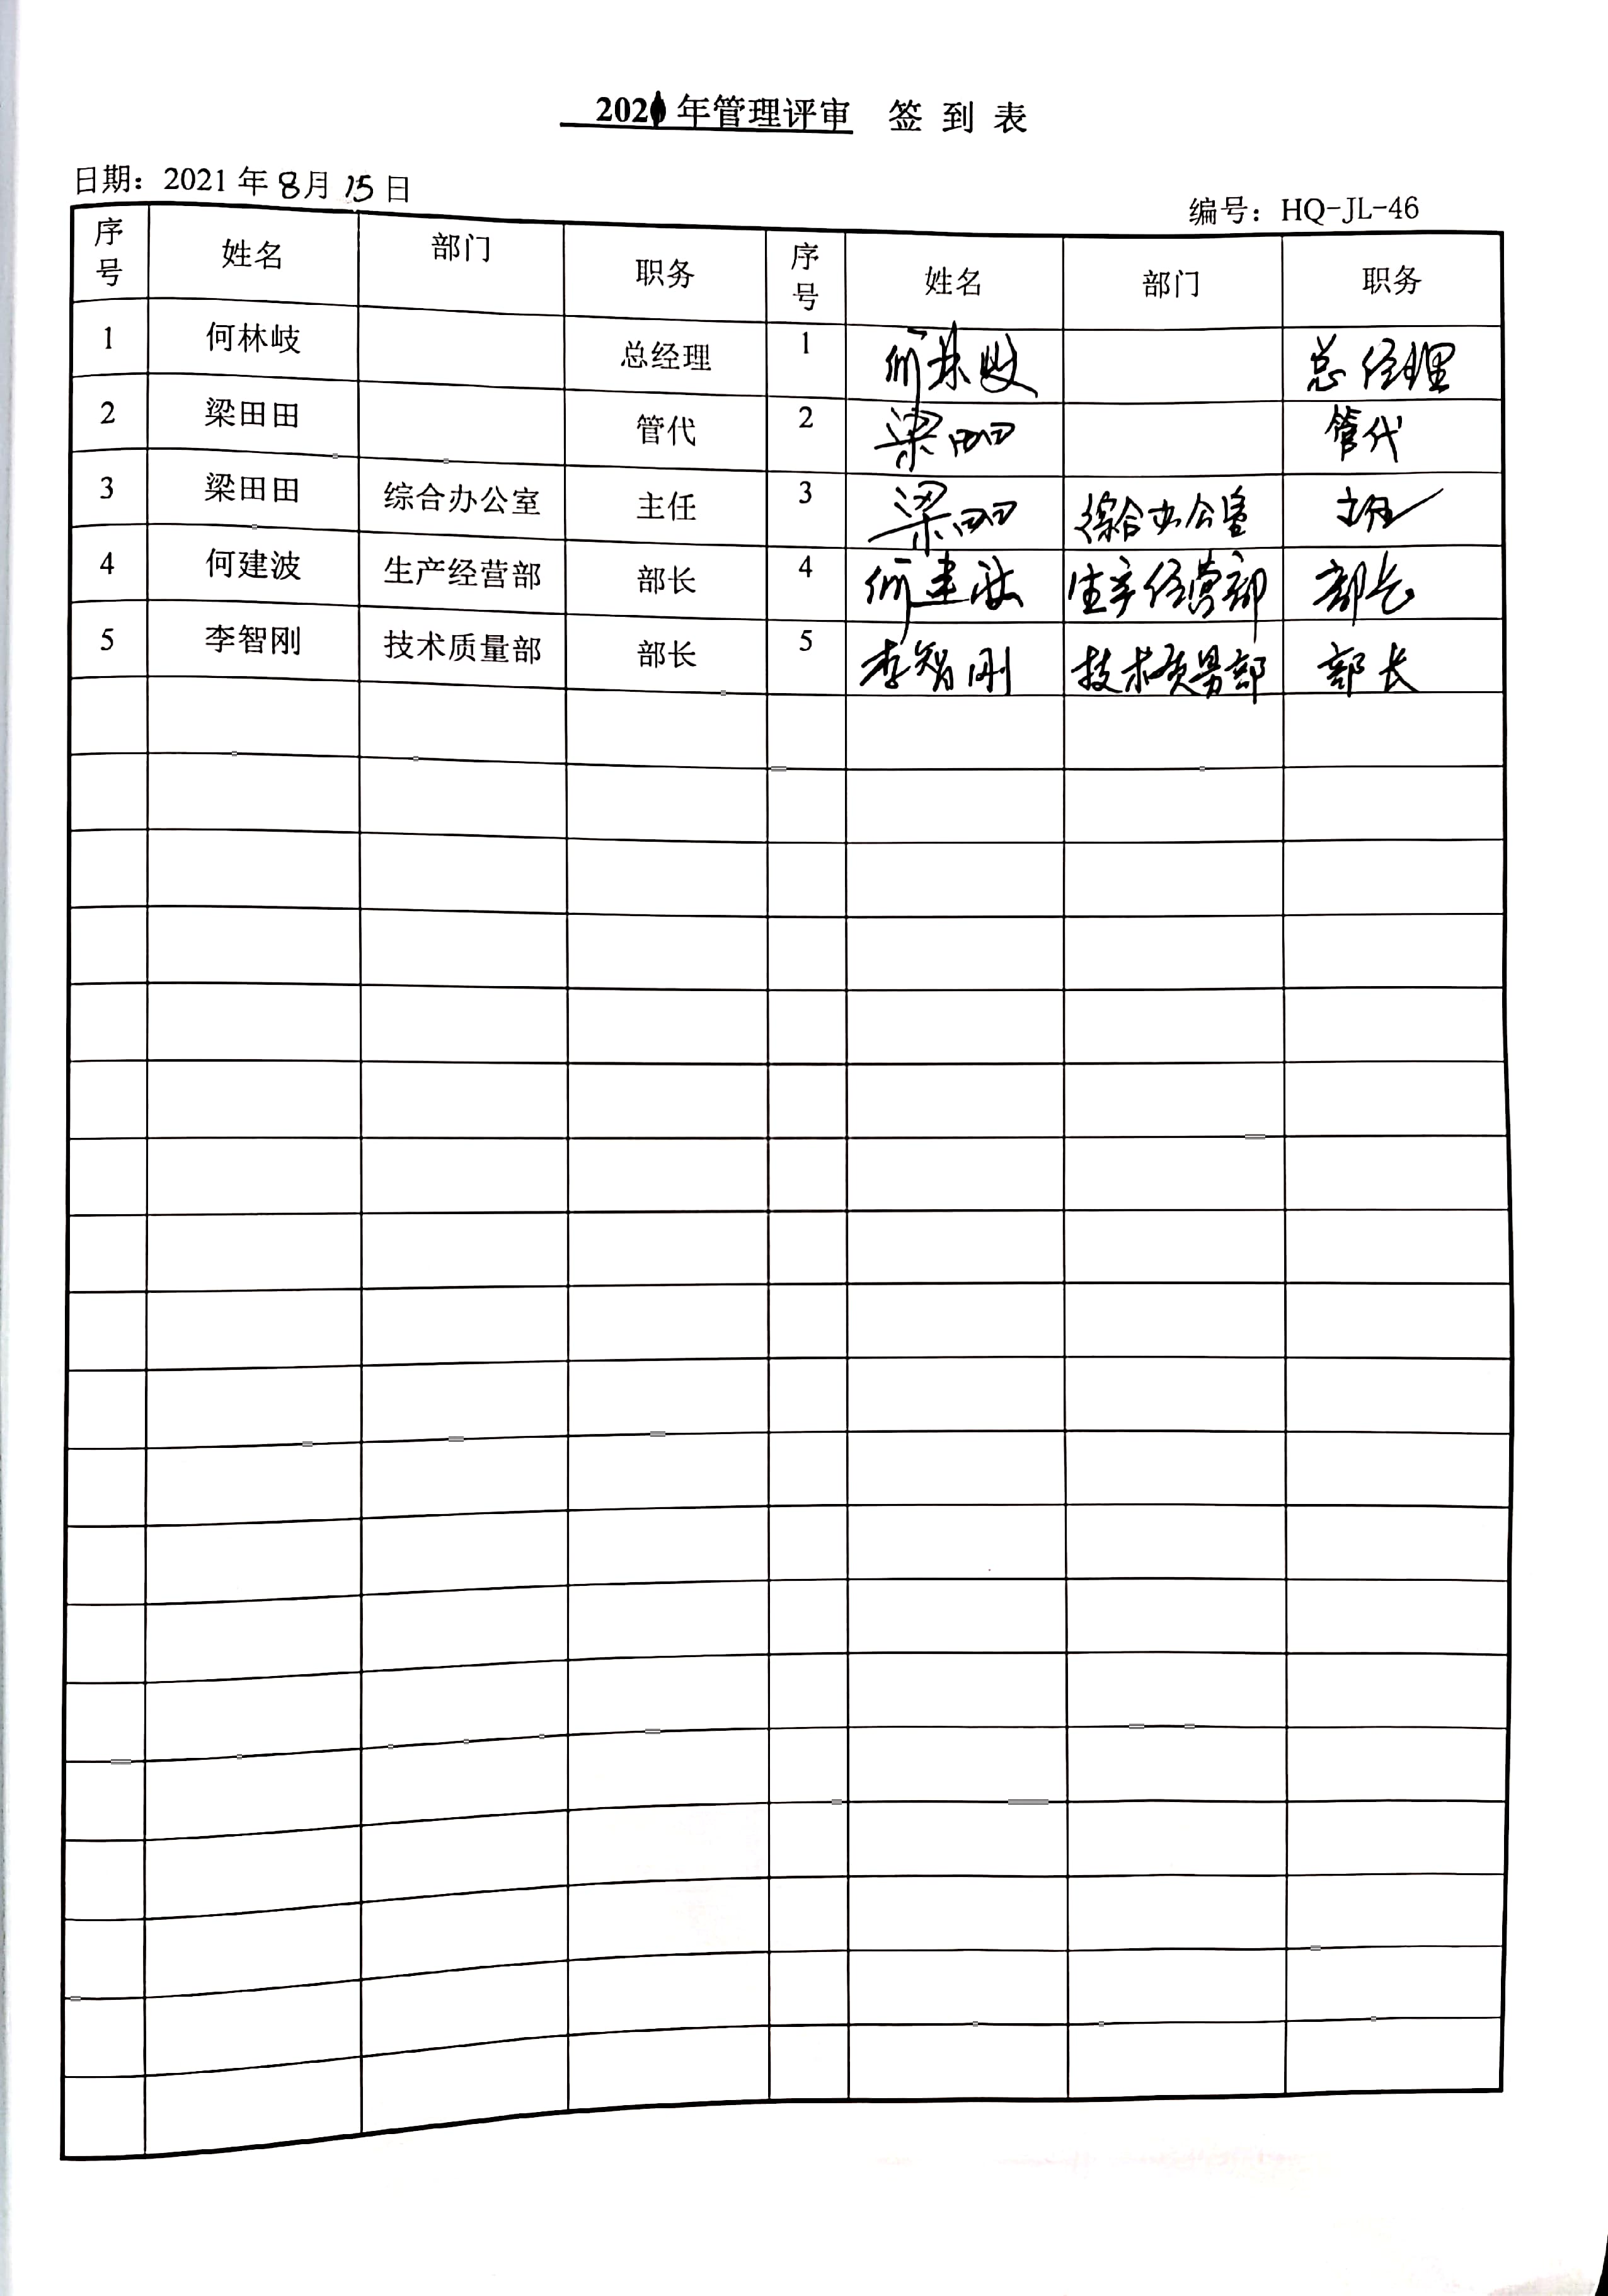 2021年管理评审 签到表
日期：2021年8月15日
编号：HQ-JL-46
序号 姓名 部门 职务 序号 姓名 部门 职务
1 何林岐 总经理 1 何林岐 总经理
2 梁田田 管代 2 梁田田 管代
3 梁田田 综合办公室 主任 3 梁田田 综合办公室 主任
4 何建波 生产经营部 部长 4 何建波 生产经营部 部长
5 李智刚 技术质量部 部长 5 李智刚 技术质量部 部长